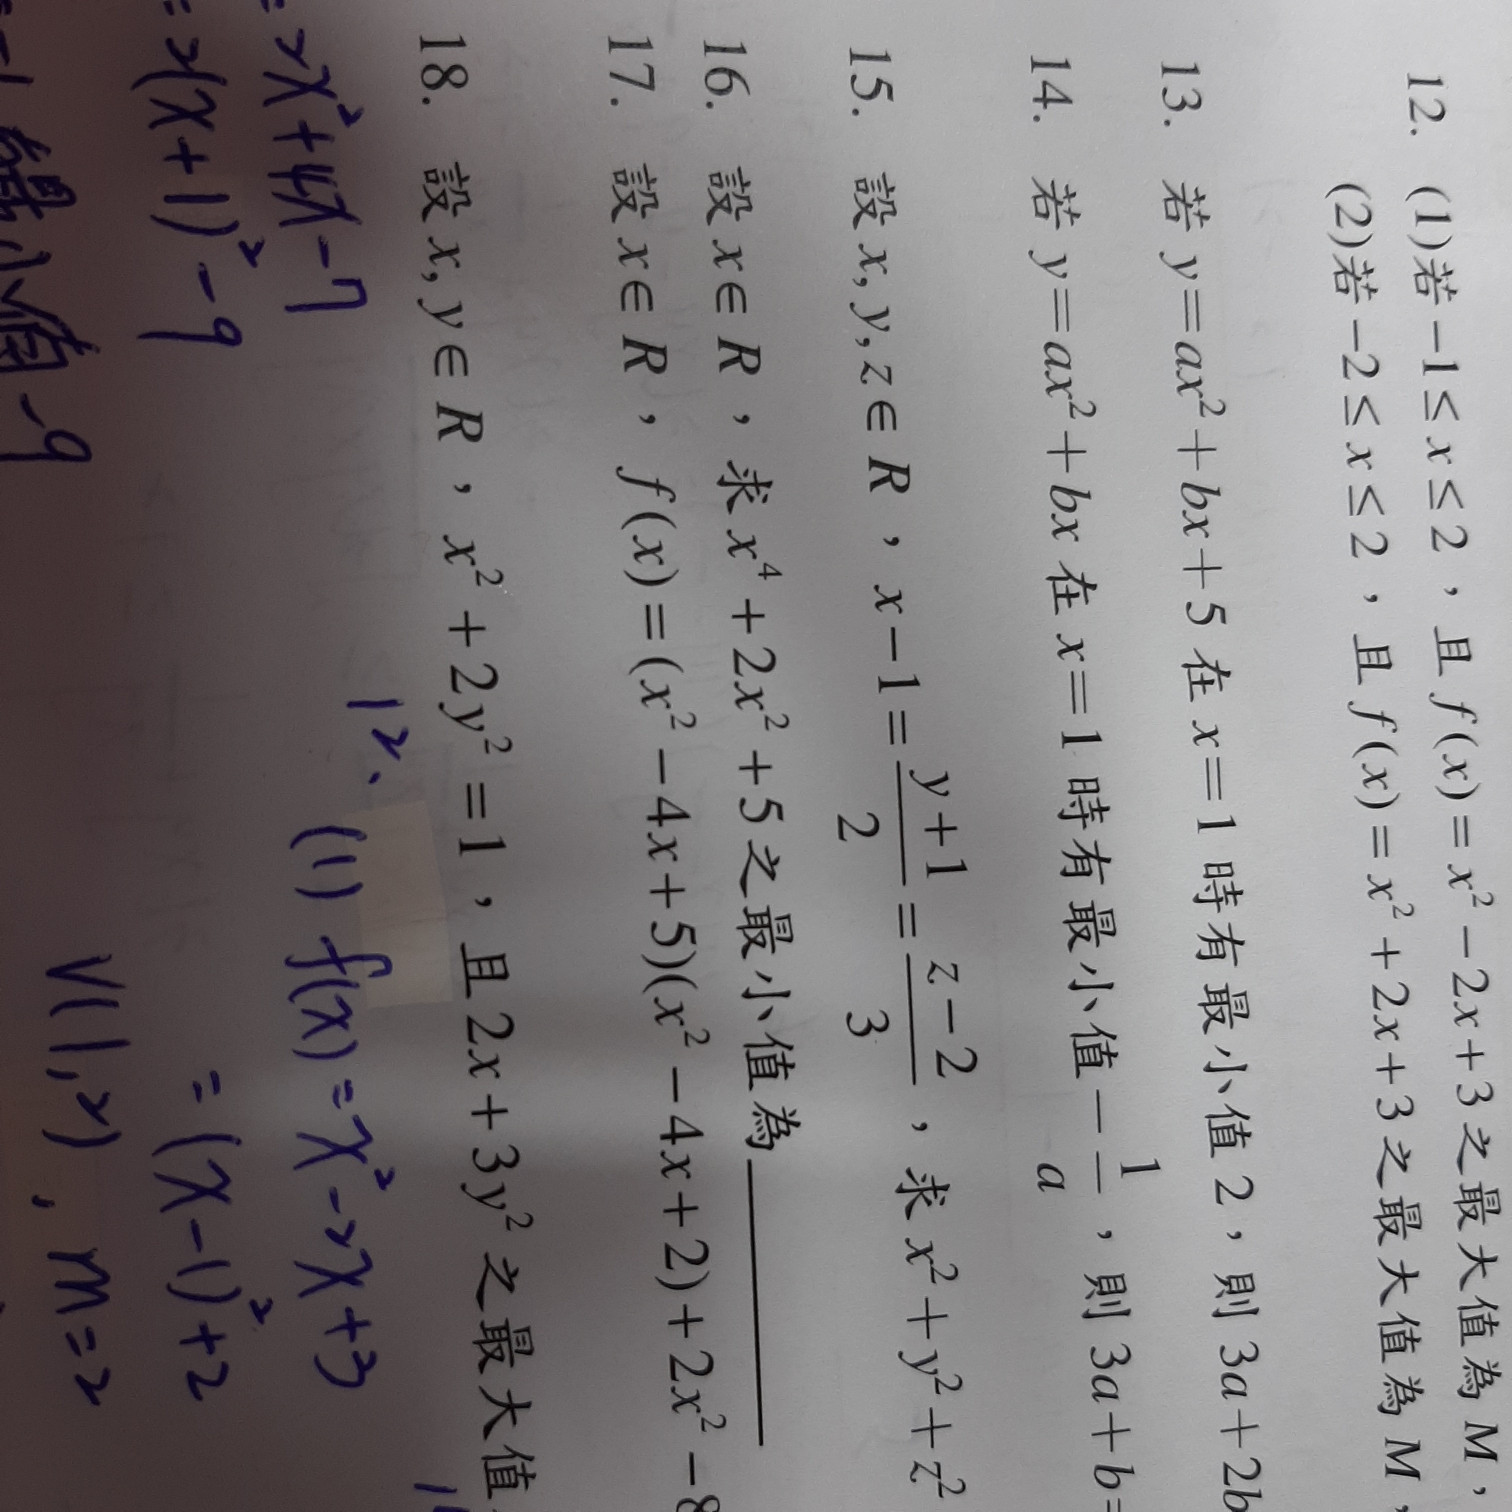 12. (1)若 -1≤x≤2，且 f(x)=x²-2x+3 之最大值為 M，
(2)若 -2≤x≤2，且 f(x)=x²+2x+3 之最大值為 M，
13. 若 y=ax²+bx+5 在 x=1 時有最小值 2，則 3a+2b
14. 若 y=ax²+bx 在 x=1 時有最小值 -1/a，則 3a+b=
15. 設 x, y, z∈R，x-1=(y+1)/2=(z-2)/3，求 x²+y²+z²
16. 設 x∈R，求 x⁴+2x²+5 之最小值為
17. 設 x∈R，f(x)=(x²-4x+5)(x²-4x+2)+2x²-8
18. 設 x, y∈R，x²+2y²=1，且 2x+3y² 之最大值
=2x²+4x-7
=2(x+1)²-9
=-1 最小值 -9
12. (1) f(x)=x²-2x+3
=(x-1)²+2
V(1,2), m=2